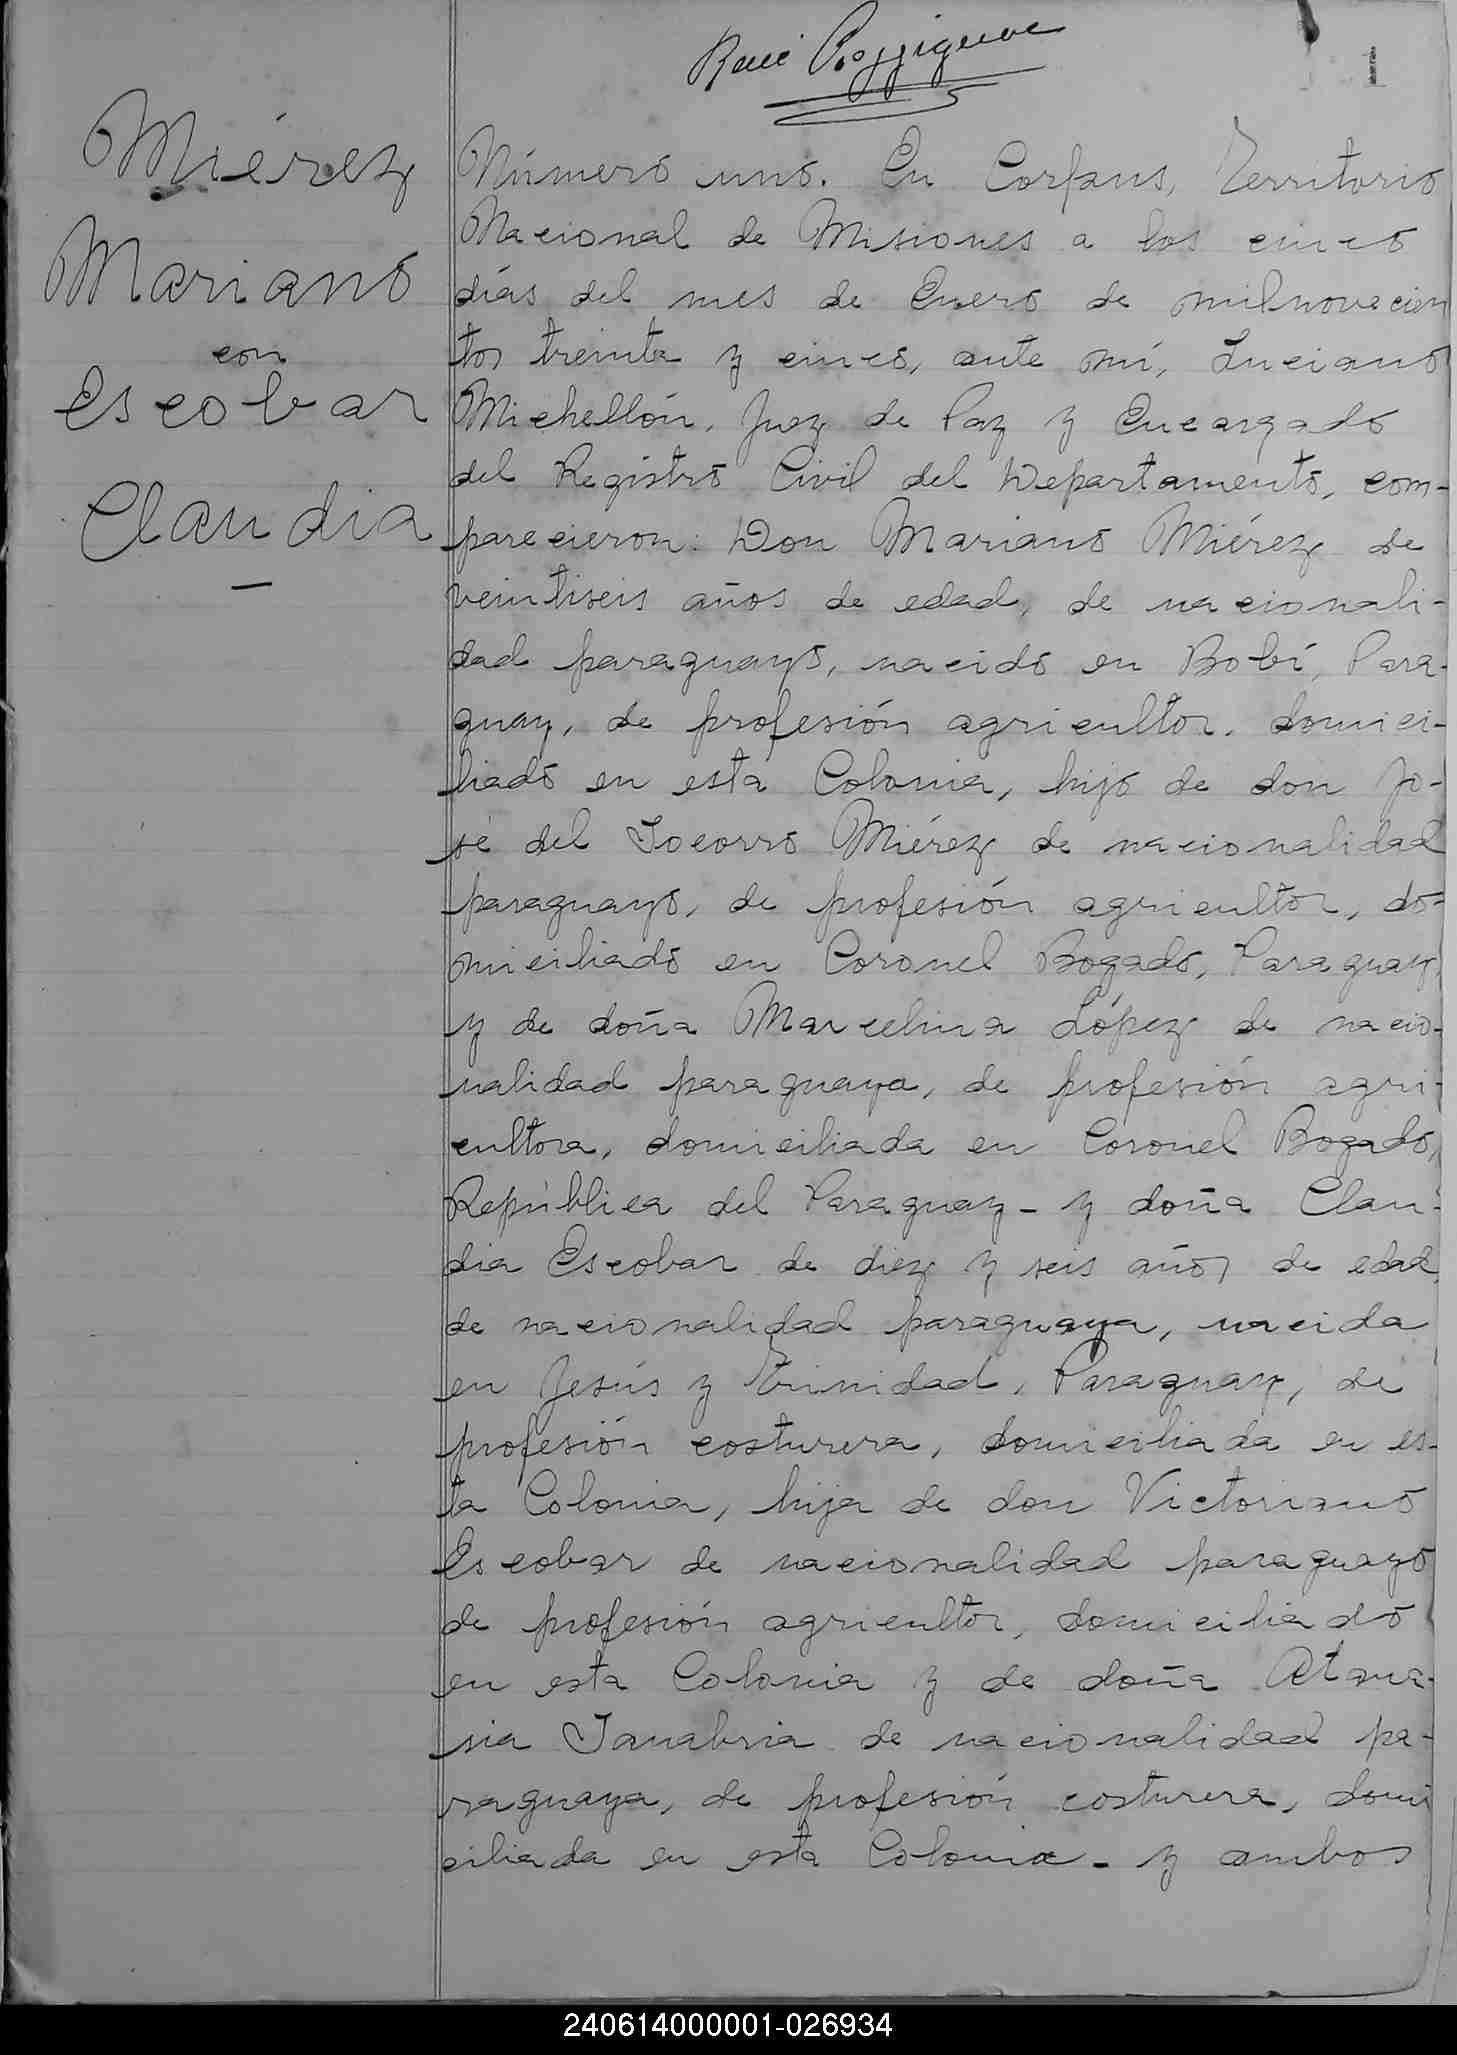 1
Miérez
Mariano
con
Escobar
Claudia
Número uno. En Corpus, Territorio
Nacional de Misiones a los cinco
días del mes de Enero de milnovecien
tos treinta y cinco, ante mí, Luciano
Michellón, Juez de Paz y Encargado
del Registro Civil del Departamento, com-
parecieron: Don Mariano Miérez de
veintiseis años de edad, de nacionali-
dad paraguayo, nacido en Bobí, Para-
guay, de profesión agricultor, domici-
liado en esta Colonia, hijo de don Jo-
sé del Socorro Miérez de nacionalidad
paraguayo, de profesión agricultor, do-
miciliado en Coronel Bogado, Paraguay,
y de doña Marcelina López de nacio-
nalidad paraguaya, de profesión agri-
cultora, domiciliada en Coronel Bogado,
República del Paraguay - y doña Clau-
dia Escobar de diez y seis años de edad,
de nacionalidad paraguaya, nacida
en Jesús y Trinidad, Paraguay, de
profesión costurera, domiciliada en es-
ta Colonia, hija de don Victoriano
Escobar de nacionalidad paraguayo
de profesión agricultor, domiciliado
en esta Colonia y de doña Atana-
sia Sanabria de nacionalidad pa-
raguaya, de profesión costurera, domi
ciliada en esta Colonia - y ambos
240614000001-026934